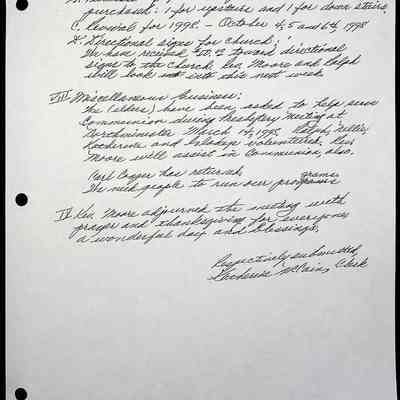 purchased: 1 for upstairs and 1 for down stairs.
C. Revival for 1998 - October 4, 5 and 6th, 1998
D. Directional signs for church:
We have received $50.00 toward directional
signs to the church. Rev. Moore and Ralph
will look into this next week.
III Miscellaneous business:
The (elders) have been asked to help serve
Communion during Presbytery Meeting at
Northminister March 14, 1998. Ralph, Nellie,
Katherine and volunteered. Rev.
Moore will assist in Communion, also.
Carl has returned.
We need people to run our programs
grams
IV Rev. Moore adjourned the meeting with
prayer and thanksgiving for everyone
a wonderful day and blessings.
Respectively submitted,
Katherine McCain, Clerk